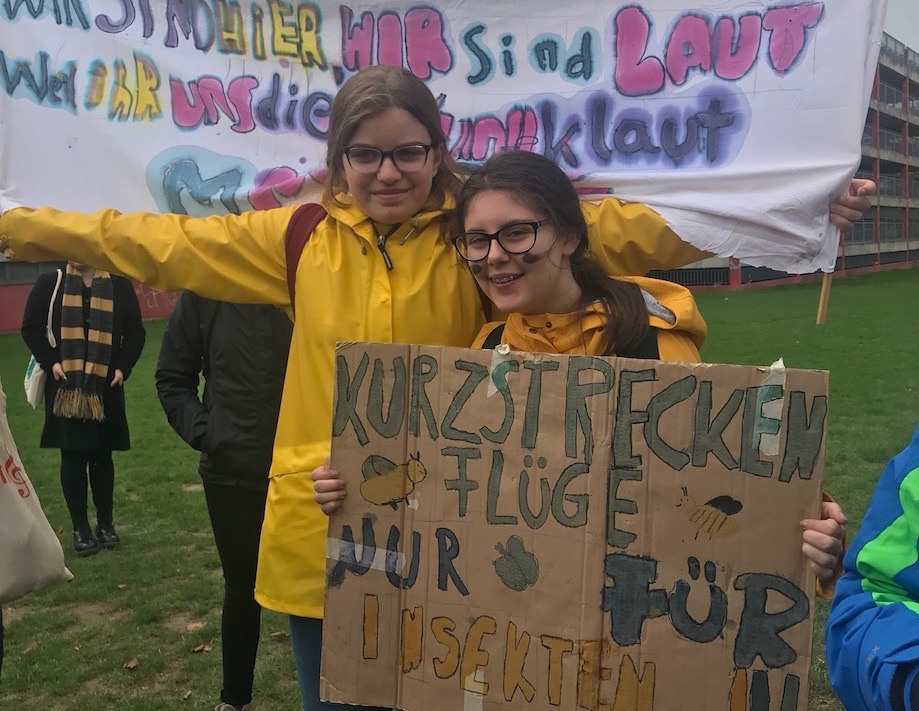 WIR SIND HIER, WIR Sind LAUT
Weil ihR UNS die klaut
KURZSTRECKEN
FLÜGE
NUR FÜR
INSEKTEN